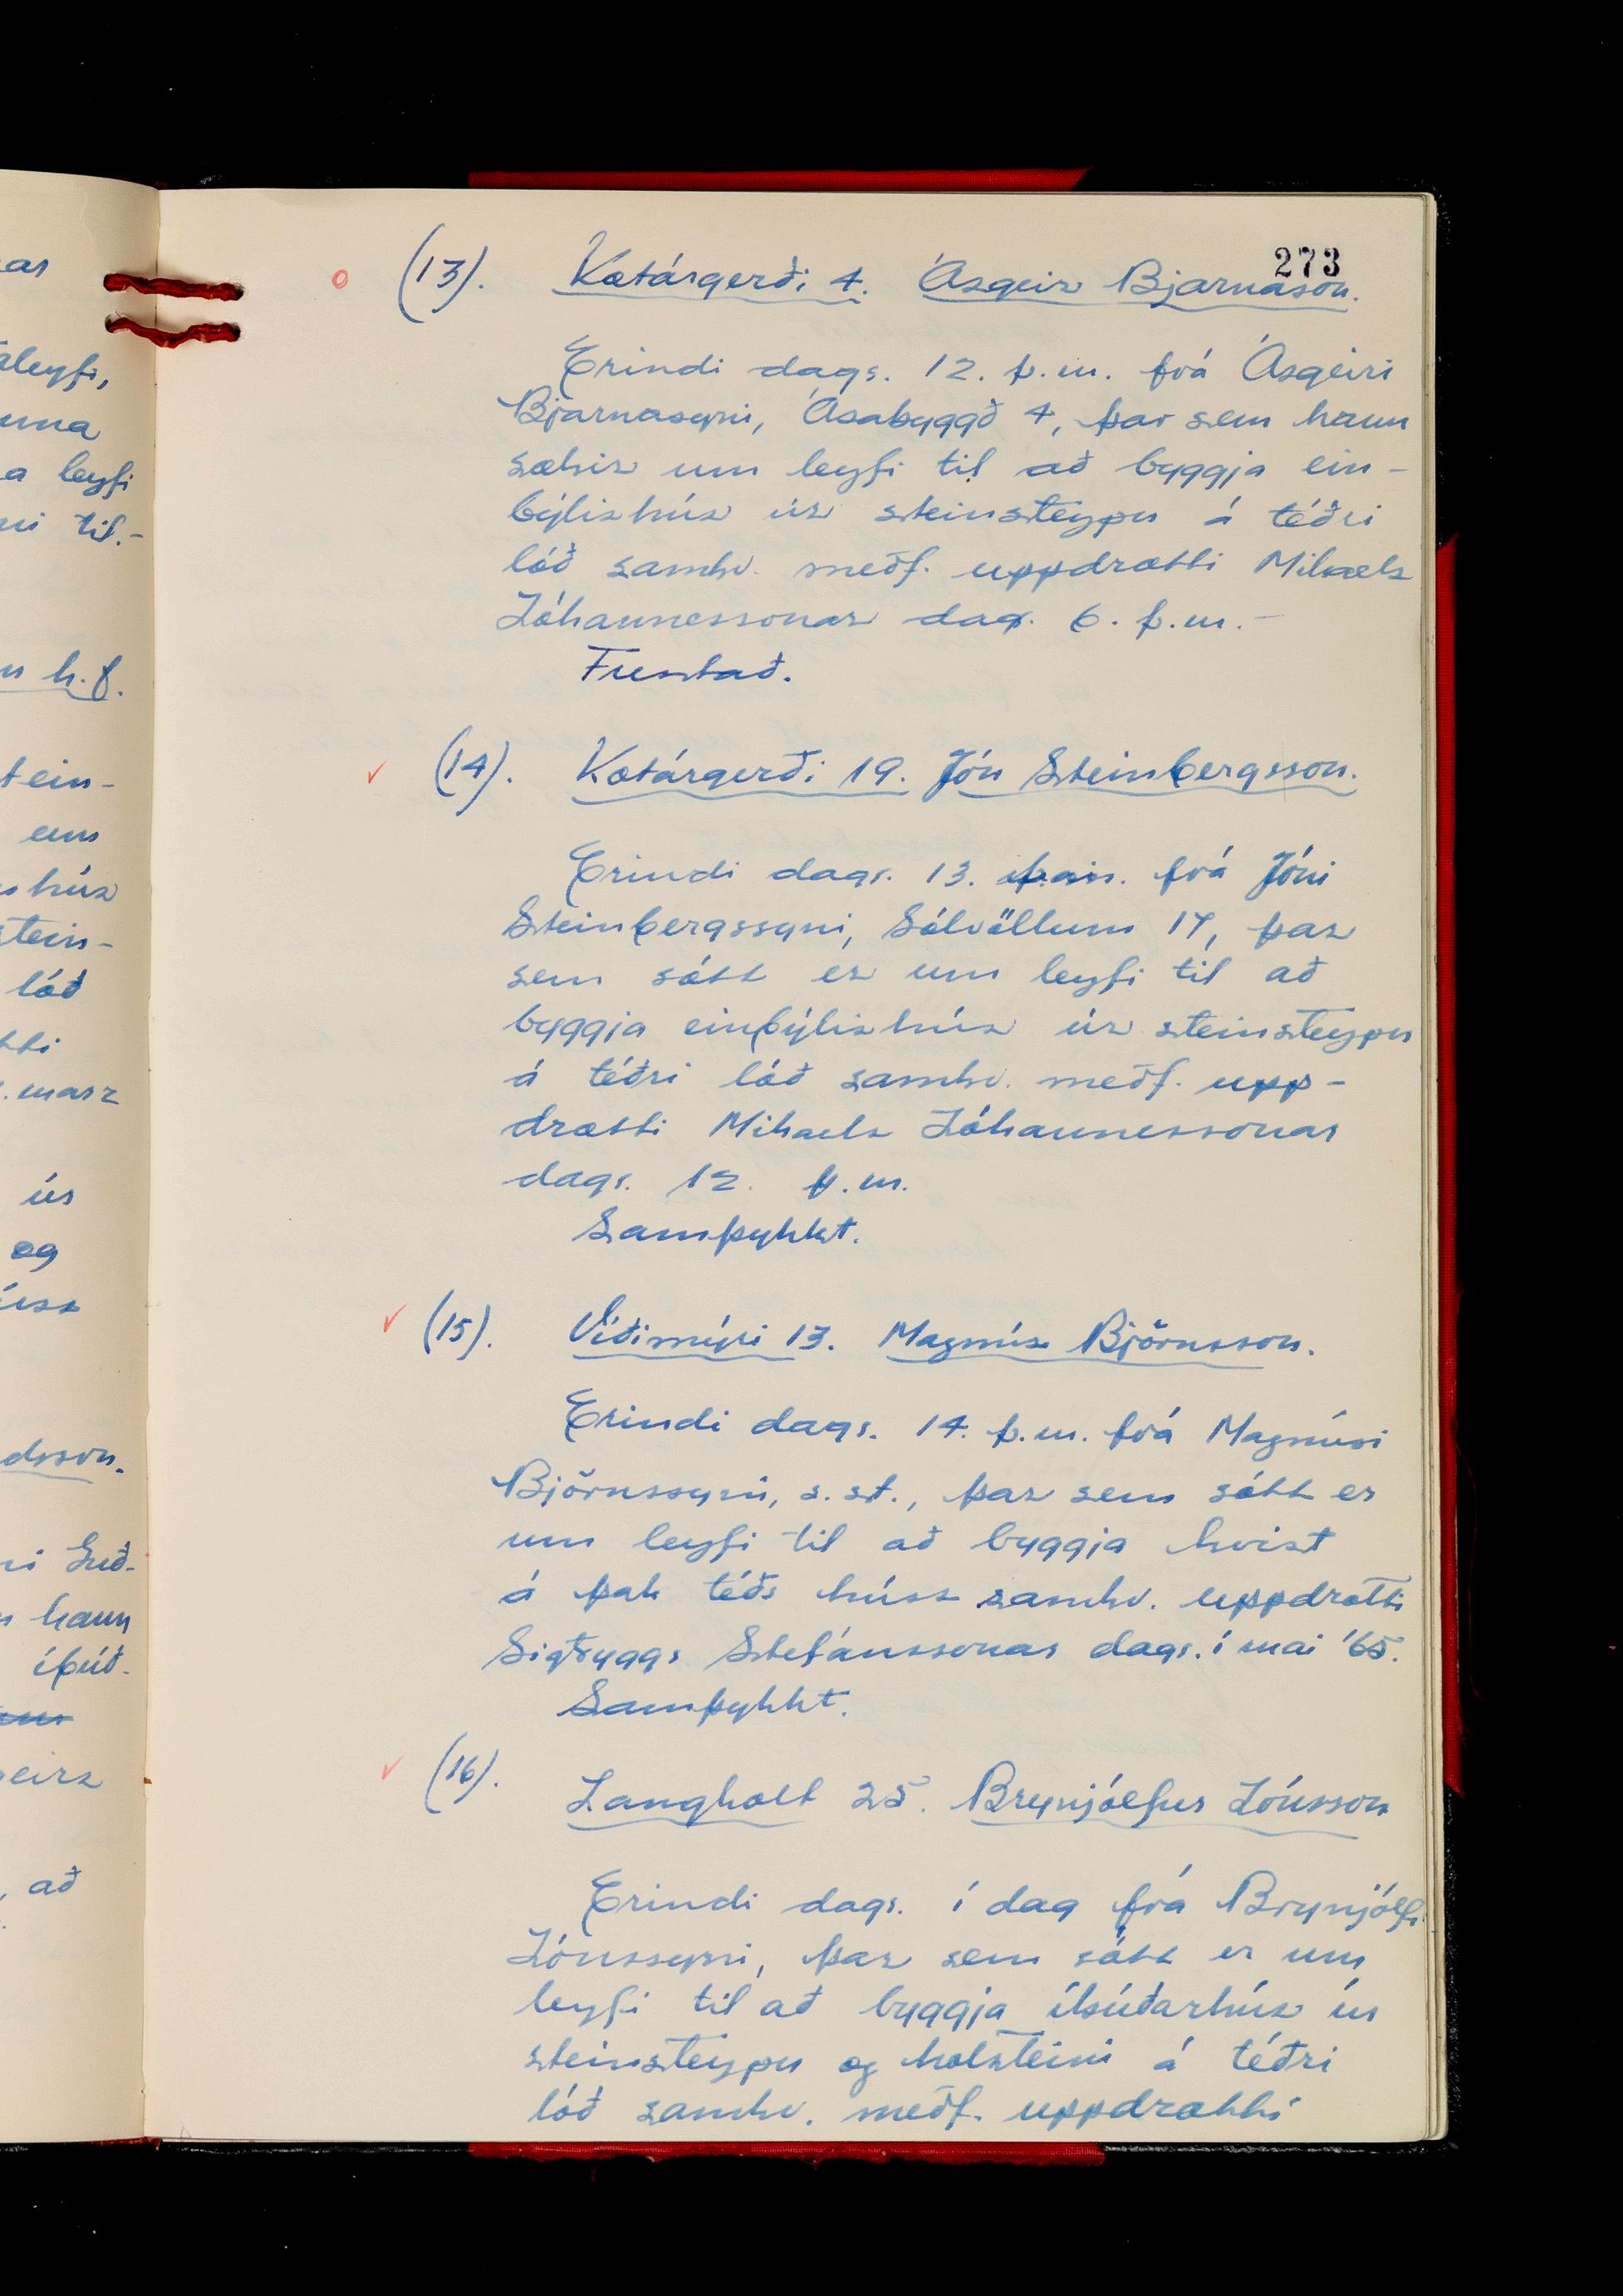 273
(13). Kotárgerði 4. Ásgeir Bjarnason.
Erindi dags. 12. þ.m. frá Ásgeiri
Bjarnasyni, Ásabyggð 4, þar sem hann
sækir um leyfi til að byggja ein-
býlishús úr steinsteypu á téðri
lóð samkv. meðf. uppdrætti Mikaels
Jóhannessonar dag. 6. þ.m.-
Frestað.
(14). Kotárgerði 19. Jón Steinbergsson.
Erindi dags. 13. þ.m. frá Jóni
Steinbergssyni, Sólvöllum 17, þar
sem sótt er um leyfi til að
byggja einbýlishús úr steinsteypu
á téðri lóð samkv. meðf. upp-
drætti Mikaels Jóhannessonar
dags. 12. þ.m.
Samþykkt.
(15). Víðimýri 13. Magnús Björnsson.
Erindi dags. 14. þ.m. frá Magnúsi
Björnssyni, s.st., þar sem sótt er
um leyfi til að byggja kvist
á þak téðs húss samkv. uppdrætti
Sigtryggs Stefánssonar dags. í mai '65.
Samþykkt.
(16). Langholt 25. Brynjólfur Jónsson
Erindi dags. í dag frá Brynjólfi
Jónssyni, þar sem sótt er um
leyfi til að byggja íbúðarhús úr
steinsteypu og holsteini á téðri
lóð samkv. meðf. uppdrætti